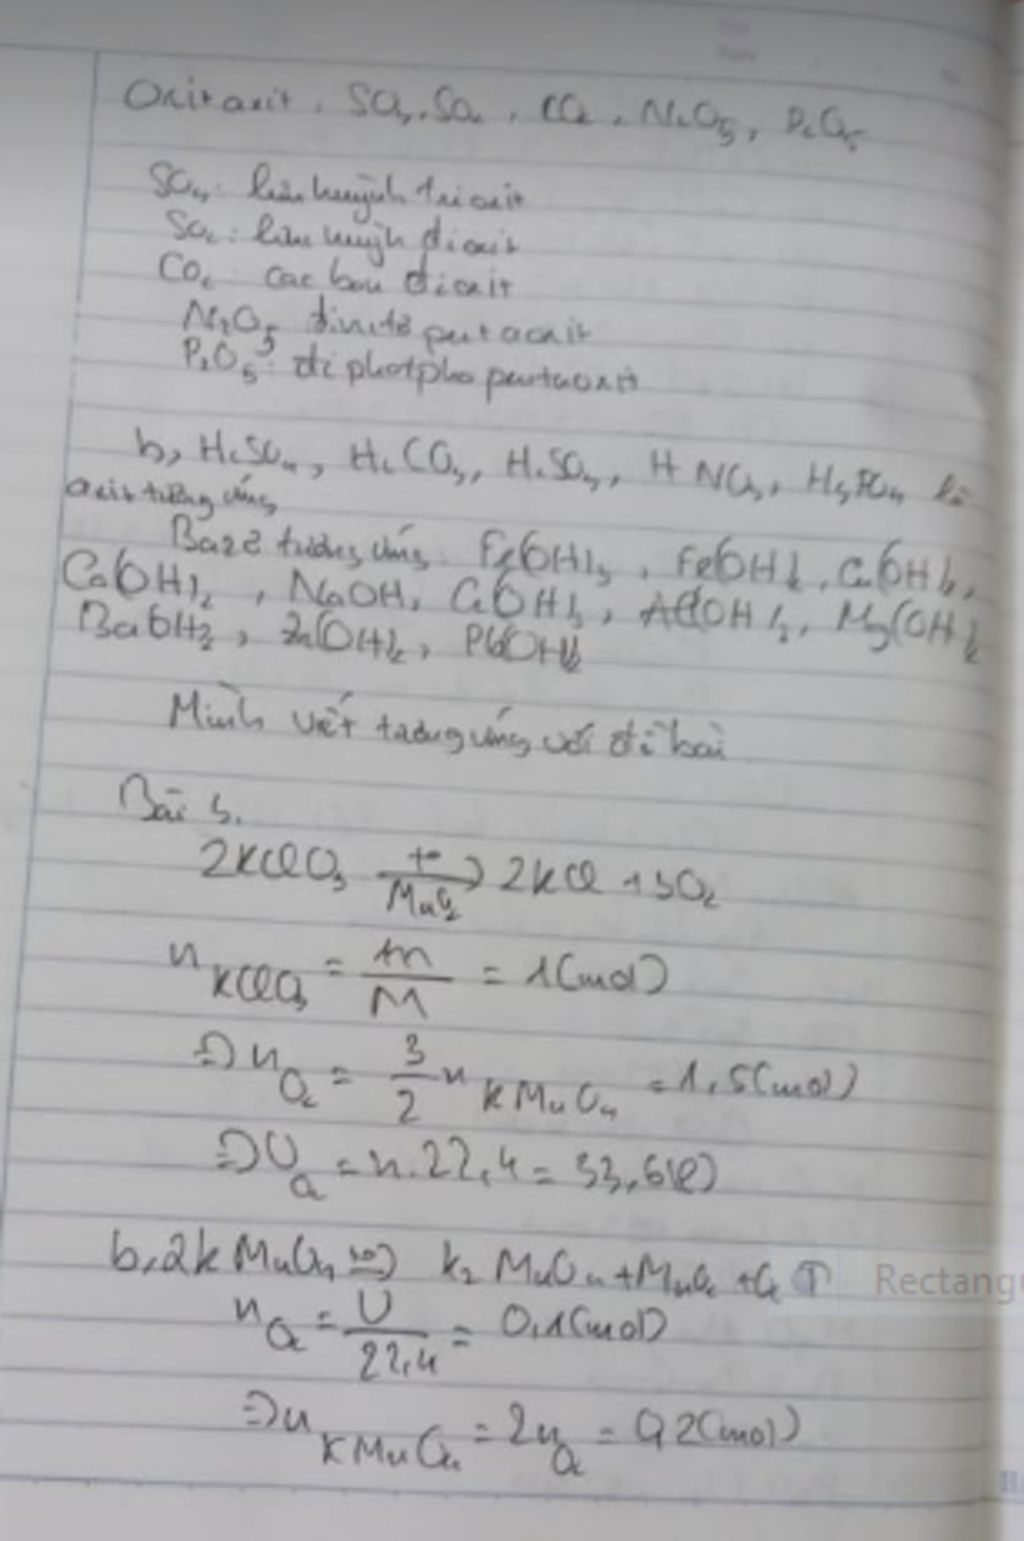 Oxit axit: SO3, SO2, CO2, N2O5, P2O5
SO3: lưu huỳnh trioxit
SO2: lưu huỳnh đioxit
CO2 cac bon đioxit
N2O5 đinitơ pentaoxit
P2O5: điphotpho pentaoxit
b, H2SO4, H2CO3, H2SO3, HNO3, H3PO4 là
axit tương ứng
Bazơ tương ứng Fe(OH)3, Fe(OH)2, Cu(OH)2,
Ca(OH)2, NaOH, Al(OH)2, Mg(OH)2
Ba(OH)2, Zn(OH)2, Pb(OH)2
Mình viết tương ứng với đề bài
Bài 5.
2KClO3 t° → MnO2 2KCl + 3O2
n KClO3 = m/M = 1(mol)
=> n O2 = 3/2 n KMnO4 = 1,5(mol)
=> V O2 = n.22,4 = 33,6(l)
b, 2KMnO4 t° → K2MnO4 + MnO2 + O2 ↑
Rectang
n O2 = V/22,4 = 0,1(mol)
=> n KMnO4 = 2n O2 = 0,2(mol)